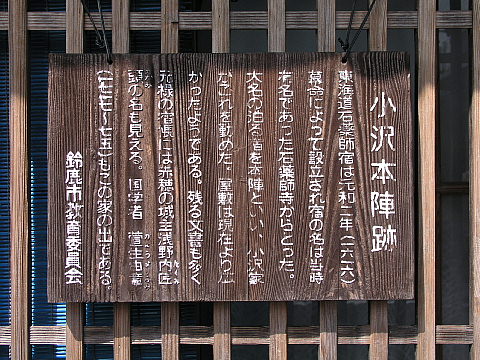 小沢本陣跡
東海道石薬師宿は元和二年(一六一六)
幕命によって設立され宿の名は当時
有名であった石薬師寺からとった。
大名の泊る宿を本陣といい、小沢家
がこれを勤めた。屋敷は現在より広
かったようである。残る文書も多く
元禄の宿帳には赤穂の城主浅野内匠
頭の名も見える。国学者 萱生由章
(一七一七~七五)もこの家の出である。
鈴鹿市教育委員会